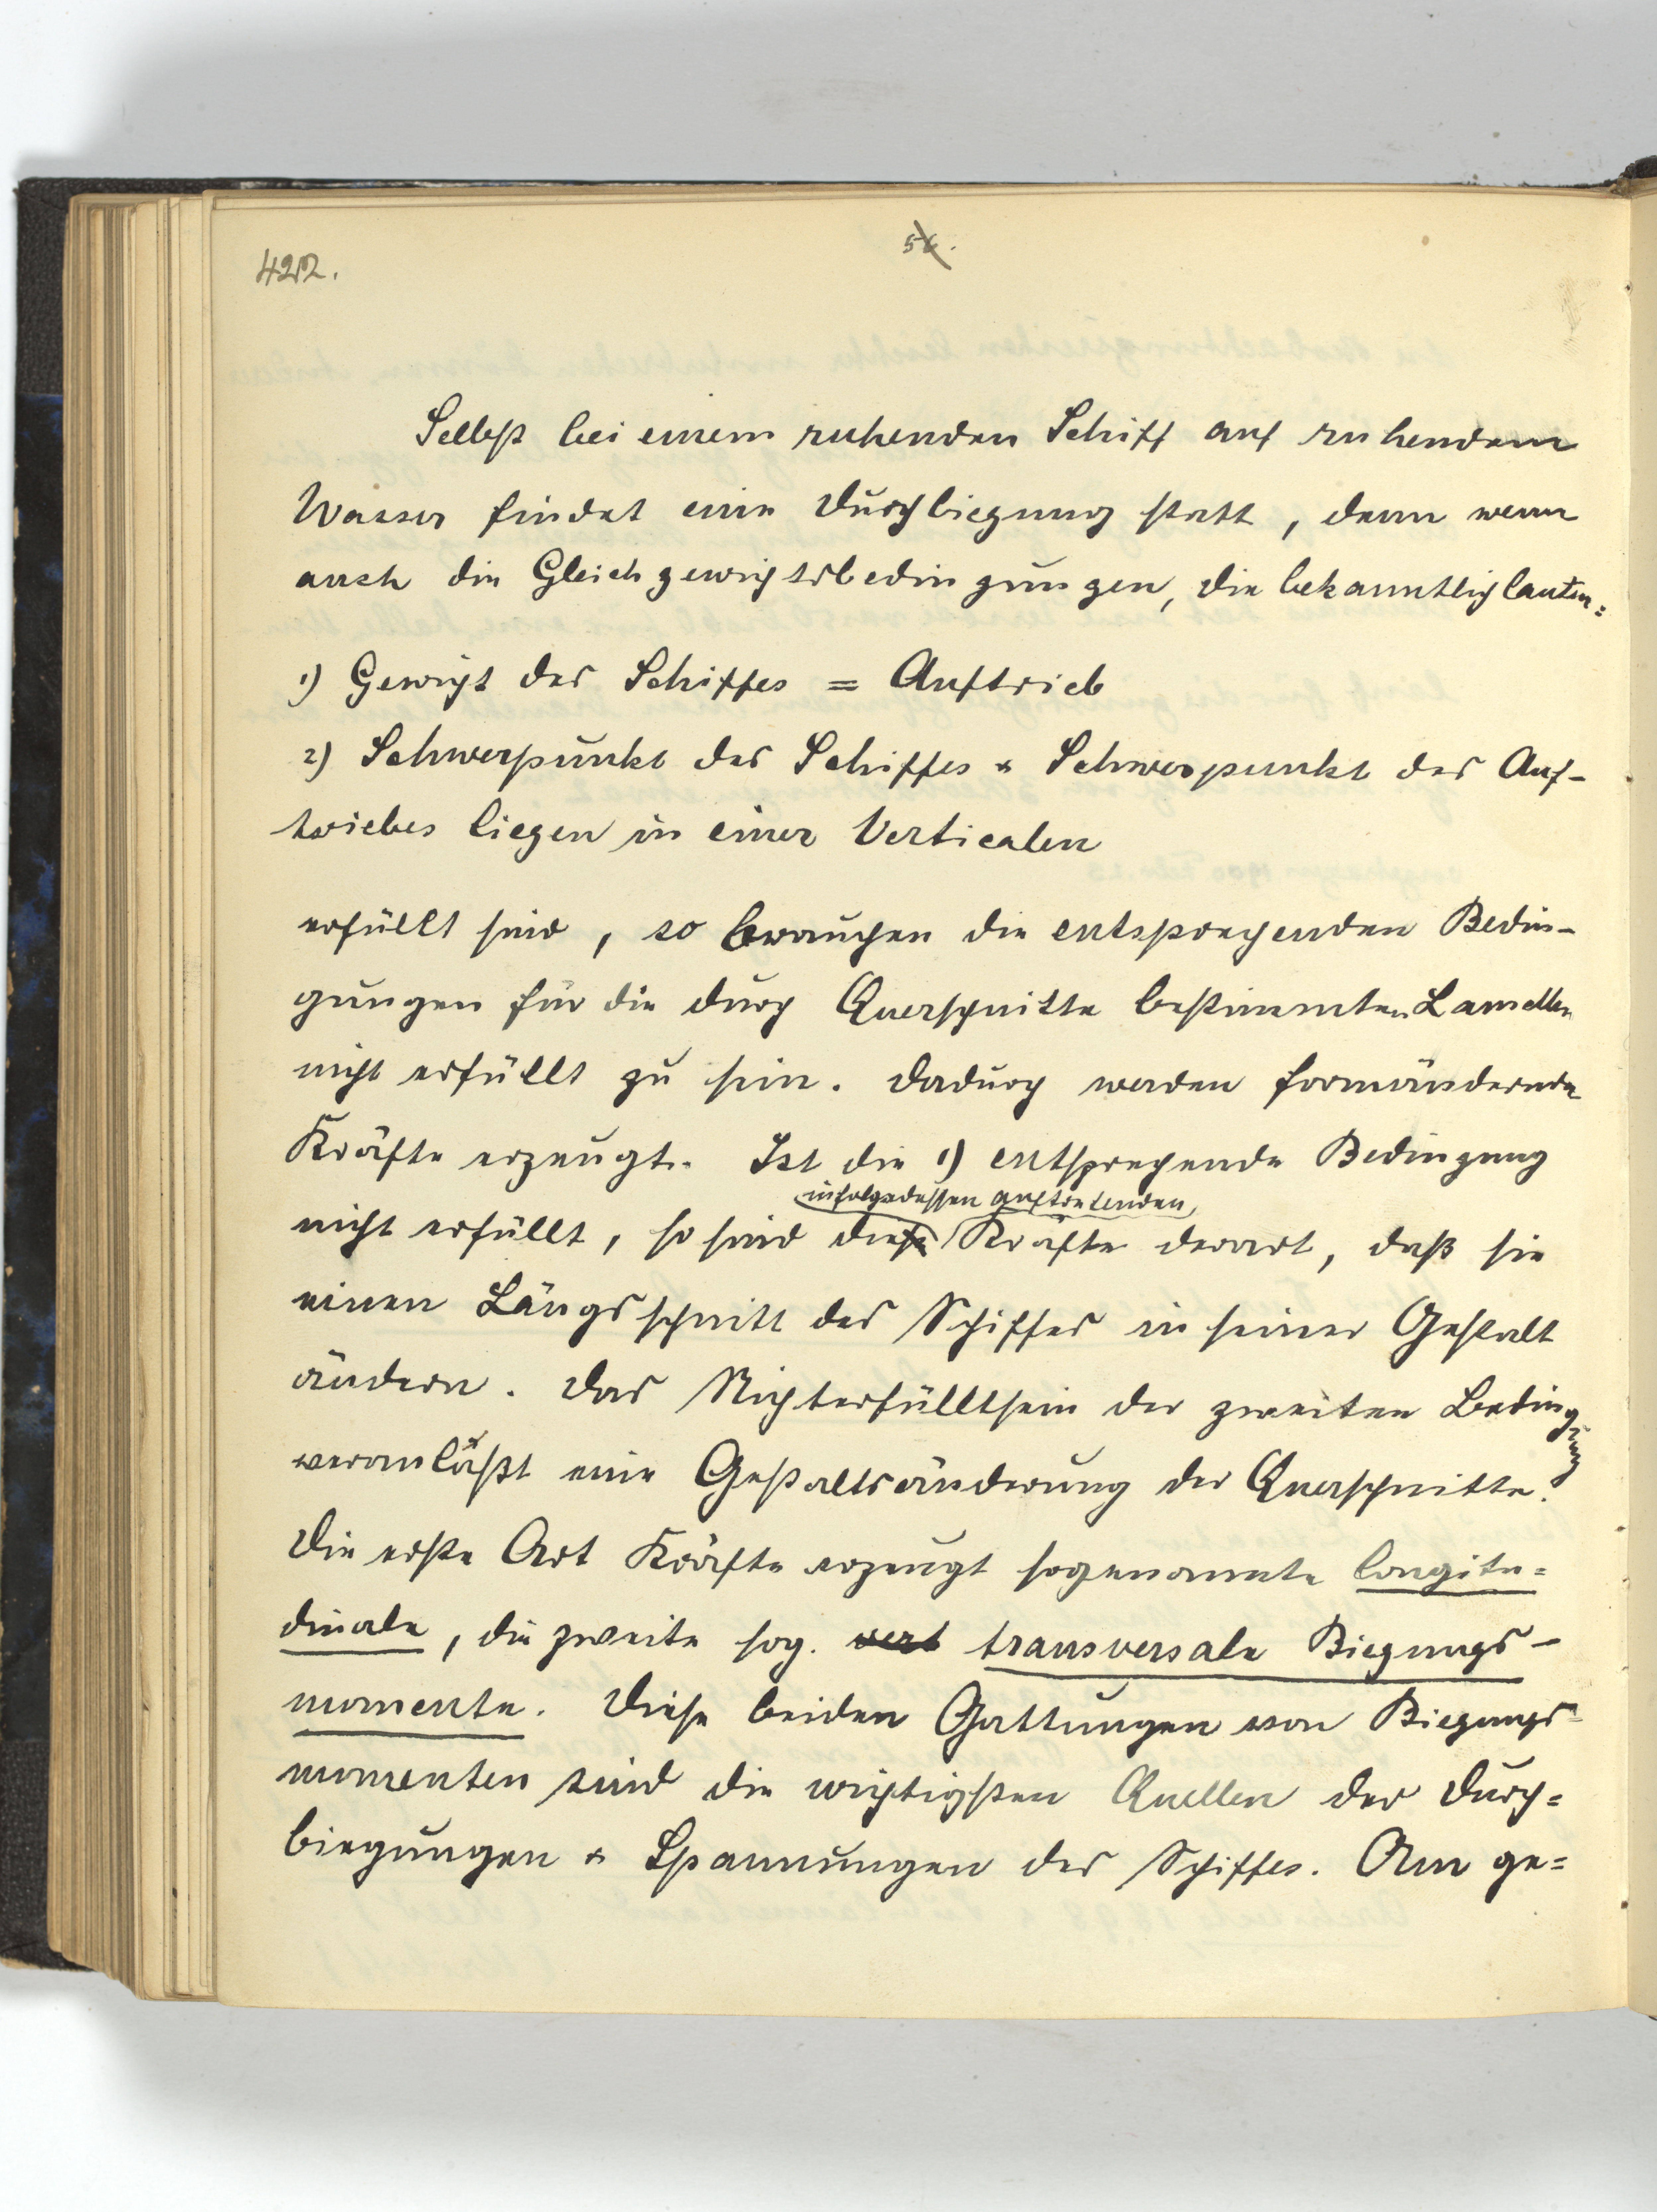 422.
56.
Selbst bei einem ruhenden Schiff auf ruhendem
Wasser findet eine Durchbiegung statt, denn wenn
auch die Gleichgewichtsbedingungen, die bekanntlich lauten:
1) Gewicht des Schiffes = Auftrieb
2) Schwerpunkt des Schiffes & Schwerpunkt des Auf-
triebes liegen in einer Verticalen
erfüllt sind, so brauchen die entsprechenden Bedin-
gungen für die durch Querschnitte bestimmten Lamellen
nicht erfüllt zu sein. Dadurch werden formändernde
Kräfte erzeugt. Ist die 1) entsprechende Bedingung
infolgedessen auftretenden
nicht erfüllt, so sind diese Kräfte derart, daß sie
einen Längsschnitt des Schiffes in seiner Gestalt
ändern. Das Nichterfülltsein der zweiten Bedingung
veranlaßt eine Gestaltsänderung der Querschnitte.
Die erste Art Kräfte erzeugt sogenannte longitu=
dinale, die zweite sog. vert transversale Biegungs-
momente. Diese beiden Gattungen von Biegungs=
momenten sind die wichtigsten Quellen der Durch=
biegungen & Spannungen des Schiffes. Am ge=